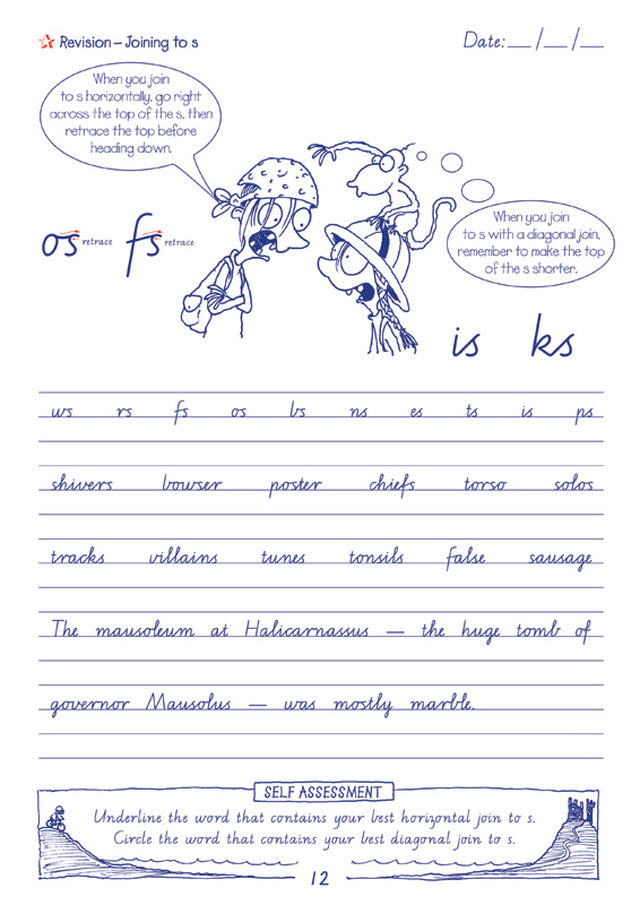 Revision – Joining to s
Date: __/__/__
When you join
to s horizontally, go right
across the top of the s, then
retrace the top before
heading down.
os retrace fs retrace
When you join
to s with a diagonal join,
remember to make the top
of the s shorter.
is ks
ws rs fs os bs ns es ts is ps
shivers bowser poster chiefs torso solos
tracks villains tunes tonsils false sausage
The mausoleum at Halicarnassus — the huge tomb of
governor Mausolus — was mostly marble.
SELF ASSESSMENT
Underline the word that contains your best horizontal join to s.
Circle the word that contains your best diagonal join to s.
12